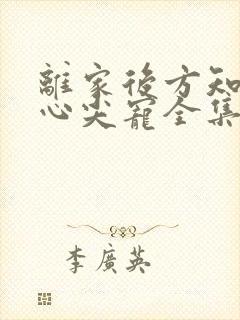 離家後方知
心尖寵全集
李廣英